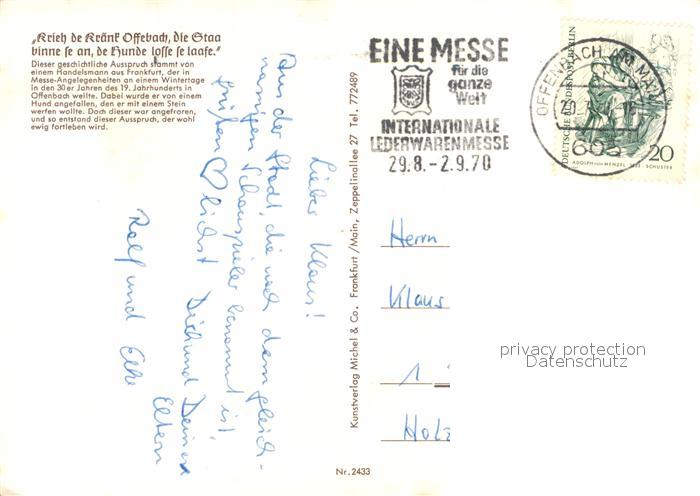 „Krieh de Kränk Offebach, die Staa
binne se an, de Hunde losse se laafe.“
Dieser geschichtliche Ausspruch stammt von
einem Handelsmann aus Frankfurt, der in
Messe-Angelegenheiten an einem Wintertage
in den 30er Jahren des 19. Jahrhunderts in
Offenbach weilte. Dabei wurde er von einem
Hund angefallen, den er mit einem Stein
werfen wollte. Doch dieser war angefroren,
und so entstand dieser Ausspruch, der wohl
ewig fortleben wird.
Lieber Klaus!
Aus der Stadt, die nach dem gleich-
namigen Schauspieler benannt ist,
grüßen ♡lichst Dich und Deine
Eltern
Ralf und Elke
Kunstverlag Michel & Co. Frankfurt/Main, Zeppelinallee 27 Tel. 772489
Nr. 2433
EINE MESSE
für die
ganze
Welt
INTERNATIONALE
LEDERWARENMESSE
29.8.-2.9.70
OFFENBACH AM MAIN
20.
605
DEUTSCHE BUNDESPOST BERLIN
20
ADOLPH VON MENZEL SCHUSTER
Herrn
Klaus
1
Holz
privacy protection
Datenschutz